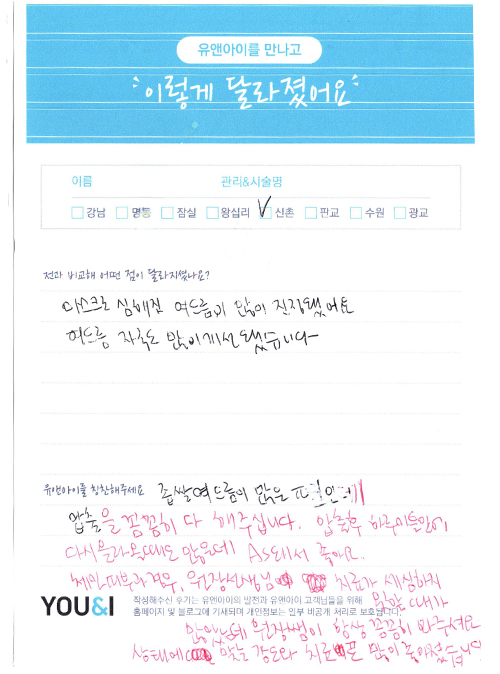 유앤아이를 만나고
이렇게 달라졌어요
이름 관리&시술명
강남 명동 잠실 왕십리 신촌 판교 수원 광교
전과 비교해 어떤 점이 달라지셨나요?
마스크로 심해진 여드름이 많이 진정됐어요
여드름 자국도 많이 개선됐습니다
유앤아이를 칭찬해주세요 좁쌀여드름이 많은 피부인데
압출을 꼼꼼히 다 해주십니다. 압출후 하루이틀안에
다시 올라올때도 많은데 AS돼서 좋아요.
원장선생님 치료가 세심하고
YOU&I
작성해주신 후기는 유앤아이의 발전과 유앤아이 고객님들을 위해
홈페이지 및 블로그에 기재되며 개인정보는 일부 비공개 처리로 보호됩니다.
많았는데 원장쌤이 항상 꼼꼼히 봐주세요
상태에 맞는 강도와 치료로 많이 좋아졌습니다